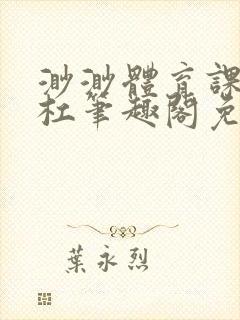 渺渺體育課
杜筆趣閣免
葉永烈